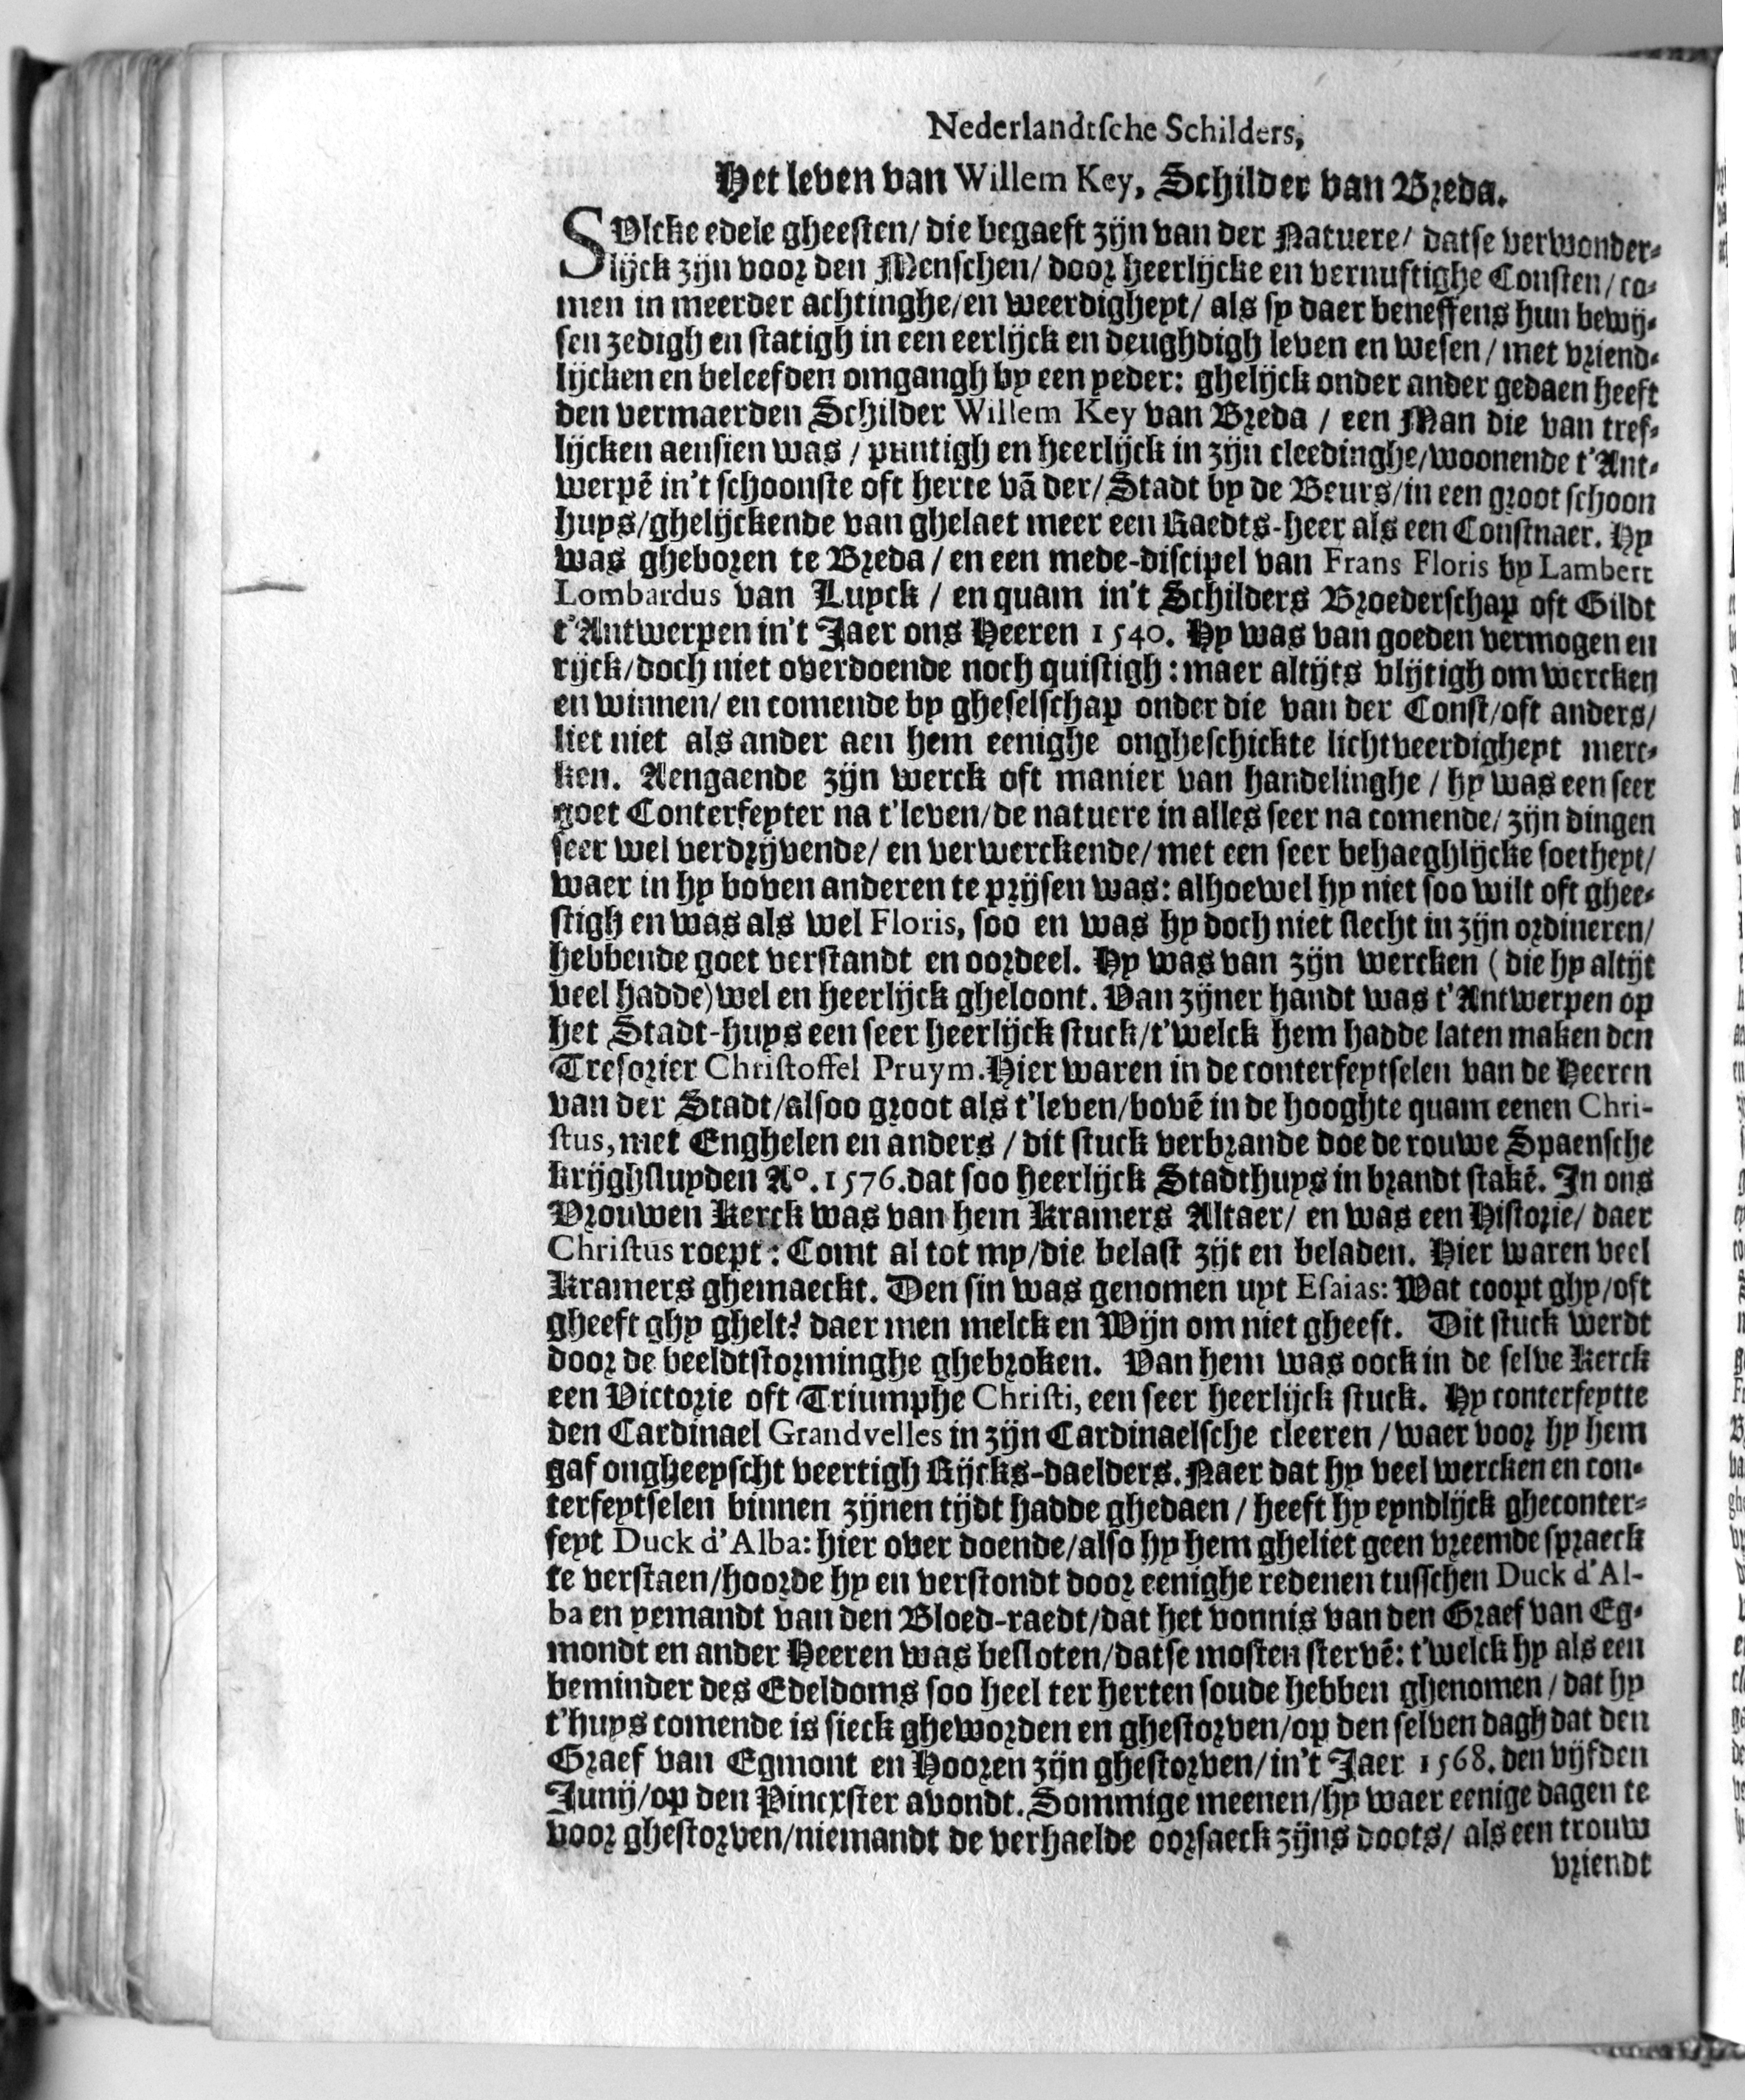 Nederlandtsche Schilders,
Het leven van Willem Key, Schilder van Breda.
SUlcke edele gheesten/ die begaeft zijn van der Natuere/ datse verwonder-
lijck zijn voor den Menschen/ door heerlijcke en vernuftighe Consten/ co-
men in meerder achtinghe/ en weerdigheyt/ als sy daer beneffens hun bewij-
sen zedigh en statigh in een eerlijck en deughdigh leven en wesen/ met vriend-
lijcken en beleefden omgangh by een yeder: ghelijck onder ander gedaen heeft
den vermaerden Schilder Willem Key van Breda / een Man die van tref-
lijcken aensien was / puntigh en heerlijck in zijn cleedinghe/ woonende t'Ant-
werpē in't schoonste oft herte vā der/ Stadt by de Beurs/ in een groot schoon
huys/ ghelijckende van ghelaet meer een Raedts-heer als een Constnaer. Hy
was gheboren te Breda / en een mede-discipel van Frans Floris by Lambert
Lombardus van Luyck / en quam in't Schilders Broederschap oft Gildt
t'Antwerpen in't Jaer ons Heeren 1540. Hy was van goeden vermogen en
rijck/ doch niet overdoende noch quistigh: maer altijts vlijtigh om wercken
en winnen/ en comende by gheselschap onder die van der Const/ oft anders/
liet niet als ander aen hem eenighe ongheschickte lichtveerdigheyt merc-
ken. Aengaende zijn werck oft manier van handelinghe / hy was een seer
goet Conterfeyter na t'leven/ de natuere in alles seer na comende/ zijn dingen
seer wel verdrijvende/ en verwerckende/ met een seer behaeghlijcke soetheyt/
waer in hy boven anderen te prijsen was: alhoewel hy niet soo wilt oft ghee-
stigh en was als wel Floris, soo en was hy doch niet slecht in zijn ordineren/
hebbende goet verstandt en oordeel. Hy was van zijn wercken ( die hy altijt
veel hadde) wel en heerlijck gheloont. Van zijner handt was t'Antwerpen op
het Stadt-huys een seer heerlijck stuck/ t'welck hem hadde laten maken den
Tresorier Christoffel Pruym. Hier waren in de conterfeytselen van de Heeren
van der Stadt/ alsoo groot als t'leven/ bovē in de hooghte quam eenen Chri-
stus, met Enghelen en anders / dit stuck verbrande doe de rouwe Spaensche
krijghsluyden A°. 1576. dat soo heerlijck Stadthuys in brandt stakē. In ons
Vrouwen Kerck was van hem Kramers Altaer/ en was een Historie/ daer
Christus roept: Comt al tot my/ die belast zijt en beladen. Hier waren veel
Kramers ghemaeckt. Den sin was genomen uyt Esaias: Wat coopt ghy/ oft
gheeft ghy ghelt? daer men melck en Wijn om niet gheeft. Dit stuck werdt
door de beeldtstorminghe ghebroken. Van hem was oock in de selve Kerck
een Victorie oft Triumphe Christi, een seer heerlijck stuck. Hy conterfeytte
den Cardinael Grandvelles in zijn Cardinaelsche cleeren / waer voor hy hem
gaf ongheeyscht veertigh Rijcks-daelders. Naer dat hy veel wercken en con-
terfeytselen binnen zijnen tijdt hadde ghedaen / heeft hy eyndlijck gheconter-
feyt Duck d'Alba: hier over doende/ also hy hem gheliet geen vreemde spraeck
te verstaen/ hoorde hy en verstondt door eenighe redenen tusschen Duck d'Al-
ba en yemandt van den Bloed-raedt/ dat het vonnis van den Graef van Eg-
mondt en ander Heeren was besloten/ datse mosten stervē: t'welck hy als een
beminder des Edeldoms soo heel ter herten soude hebben ghenomen / dat hy
t'huys comende is sieck gheworden en ghestorven/ op den selven dagh dat den
Graef van Egmont en Hooren zijn ghestorven/ in't Jaer 1568. den vijfden
Junij/ op den Pincxster avondt. Sommige meenen/ hy waer eenige dagen te
voor ghestorven/ niemandt de verhaelde oorsaeck zijns doots/ als een trouw
vriendt